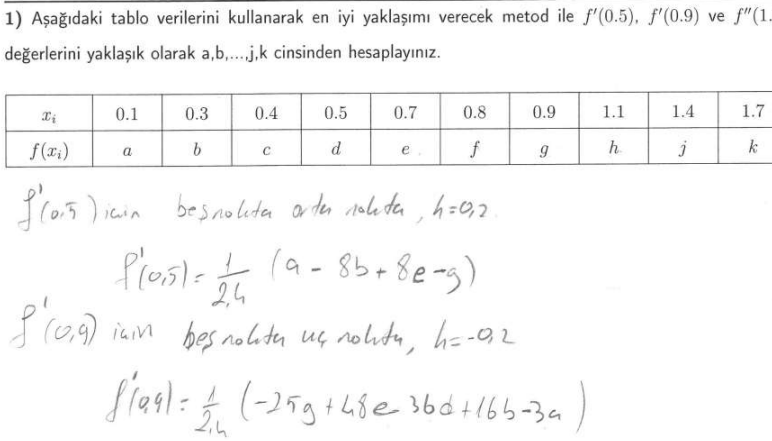 1) Aşağıdaki tablo verilerini kullanarak en iyi yaklaşımı verecek metod ile f′(0.5), f′(0.9) ve f″(1.
değerlerini yaklaşık olarak a,b,...,j,k cinsinden hesaplayınız.
x_i 0.1 0.3 0.4 0.5 0.7 0.8 0.9 1.1 1.4 1.7
f(x_i) a b c d e f g h j k
f'(0,5) için beşnokta orta nokta, h=0,2
f'(0,5) = 1/2,4 (a - 8b + 8e - g)
f'(0,9) için beş nokta uç nokta, h=-0,2
f'(0,9) = 1/2,4 (-25g + 48e 36d + 16b - 3a)